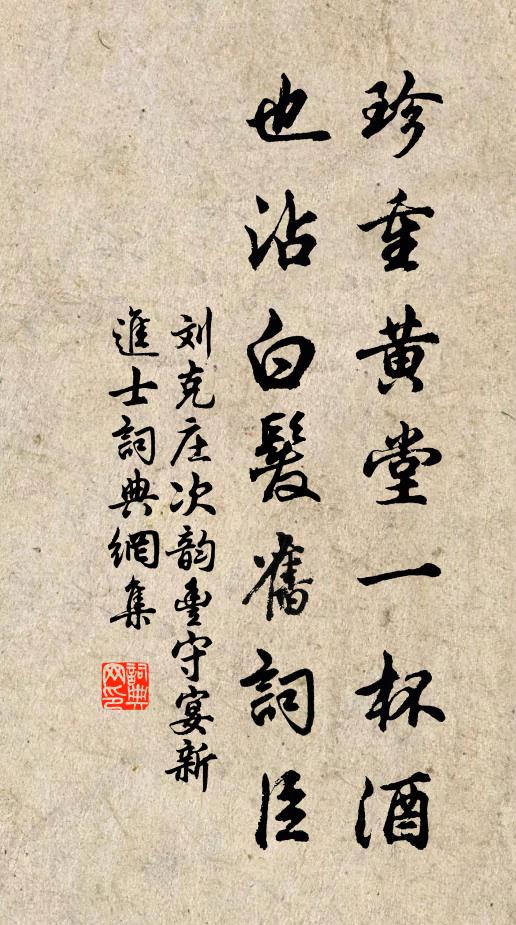 珍重黄堂一杯酒
也沾白髮舊詞臣
刘克庄次韵豊守宴新
進士詞典網集
詞典
网印